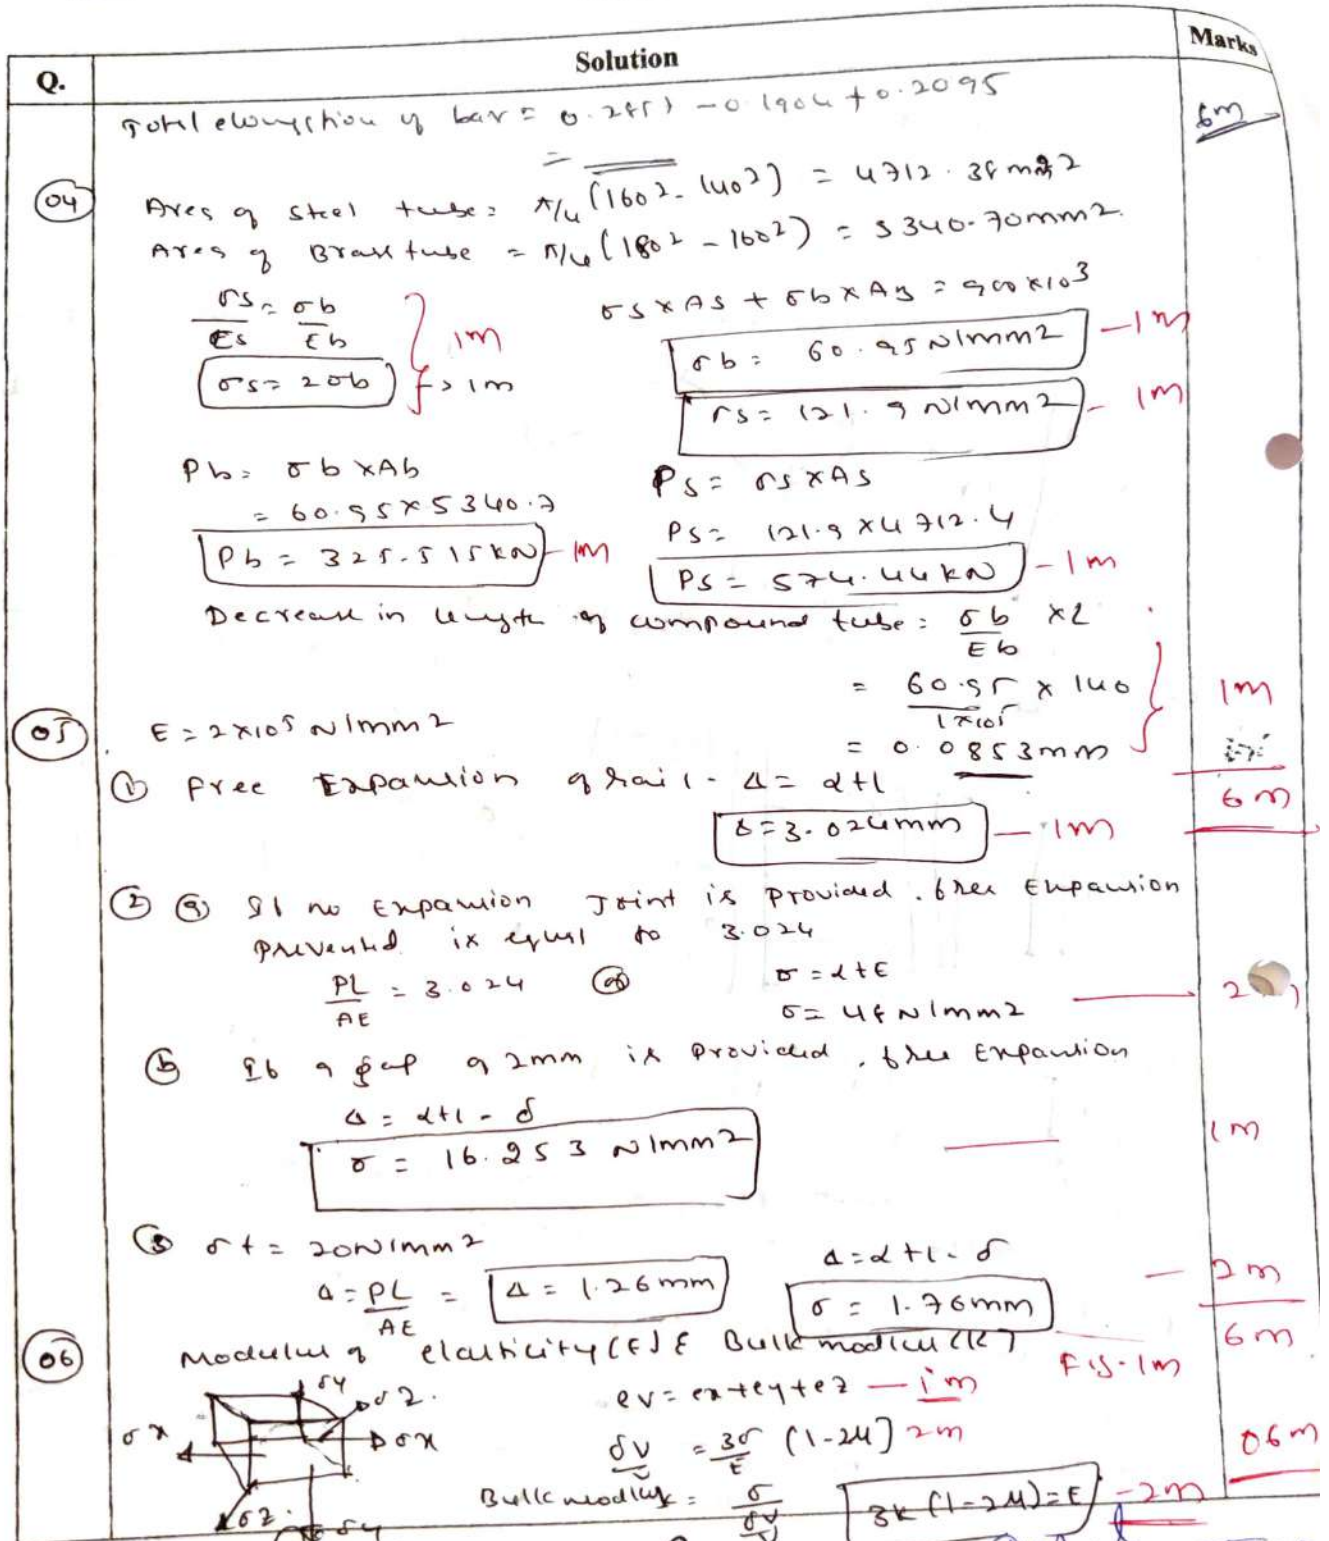 Q. Solution Marks
Total elongation of bar = 0.2851 - 0.1904 + 0.2095
=
6m
04 Area of steel tube = π/4 (160² - 140²) = 4712.38 mm2
Area of Brass tube = π/4 (180² - 160²) = 5340.70mm2.
σs/Es = σb/Eb } 1m
σs × As + σb × AB = 900×10³
σs = 2σb } → 1m
σb = 60.95 N/mm2 - 1m
σs = 121.9 N/mm2 - 1m
Pb = σb × Ab
Ps = σs × As
= 60.95 × 5340.7
Ps = 121.9 × 4712.4
Pb = 325.515 kN - 1m
Ps = 574.44 kN - 1m
Decrease in length of compound tube = σb/Eb × L
= 60.95/1×10⁵ × 140 } 1m
= 0.0853mm
6m
05 E = 2×10⁵ N/mm2
① free Expansion of rail - Δ = αtl
δ = 3.024mm - 1m
② ⓐ If no Expansion Joint is provided. free Expansion
prevented is equal to 3.024
PL/AE = 3.024 or σ = αtE
σ = 48 N/mm2 2
ⓑ If a gap of 2mm is provided, free Expansion
Δ = αtl - δ
σ = 16.253 N/mm2 1m
③ σt = 20N/mm2
Δ = αtl - δ
Δ = PL/AE = Δ = 1.26mm
σ = 1.76mm - 2m
6m
06 Modulus of elasticity (E) & Bulk modlus (K) Fig - 1m
σy
σz.
σx
σx
σz.
σy
ev = ex+ey+ez - 1m
δV/V = 3σ/E (1-2μ) 2m
06m
Bulk modlus = σ/(δV/V) 3K (1-2μ) = E - 2m